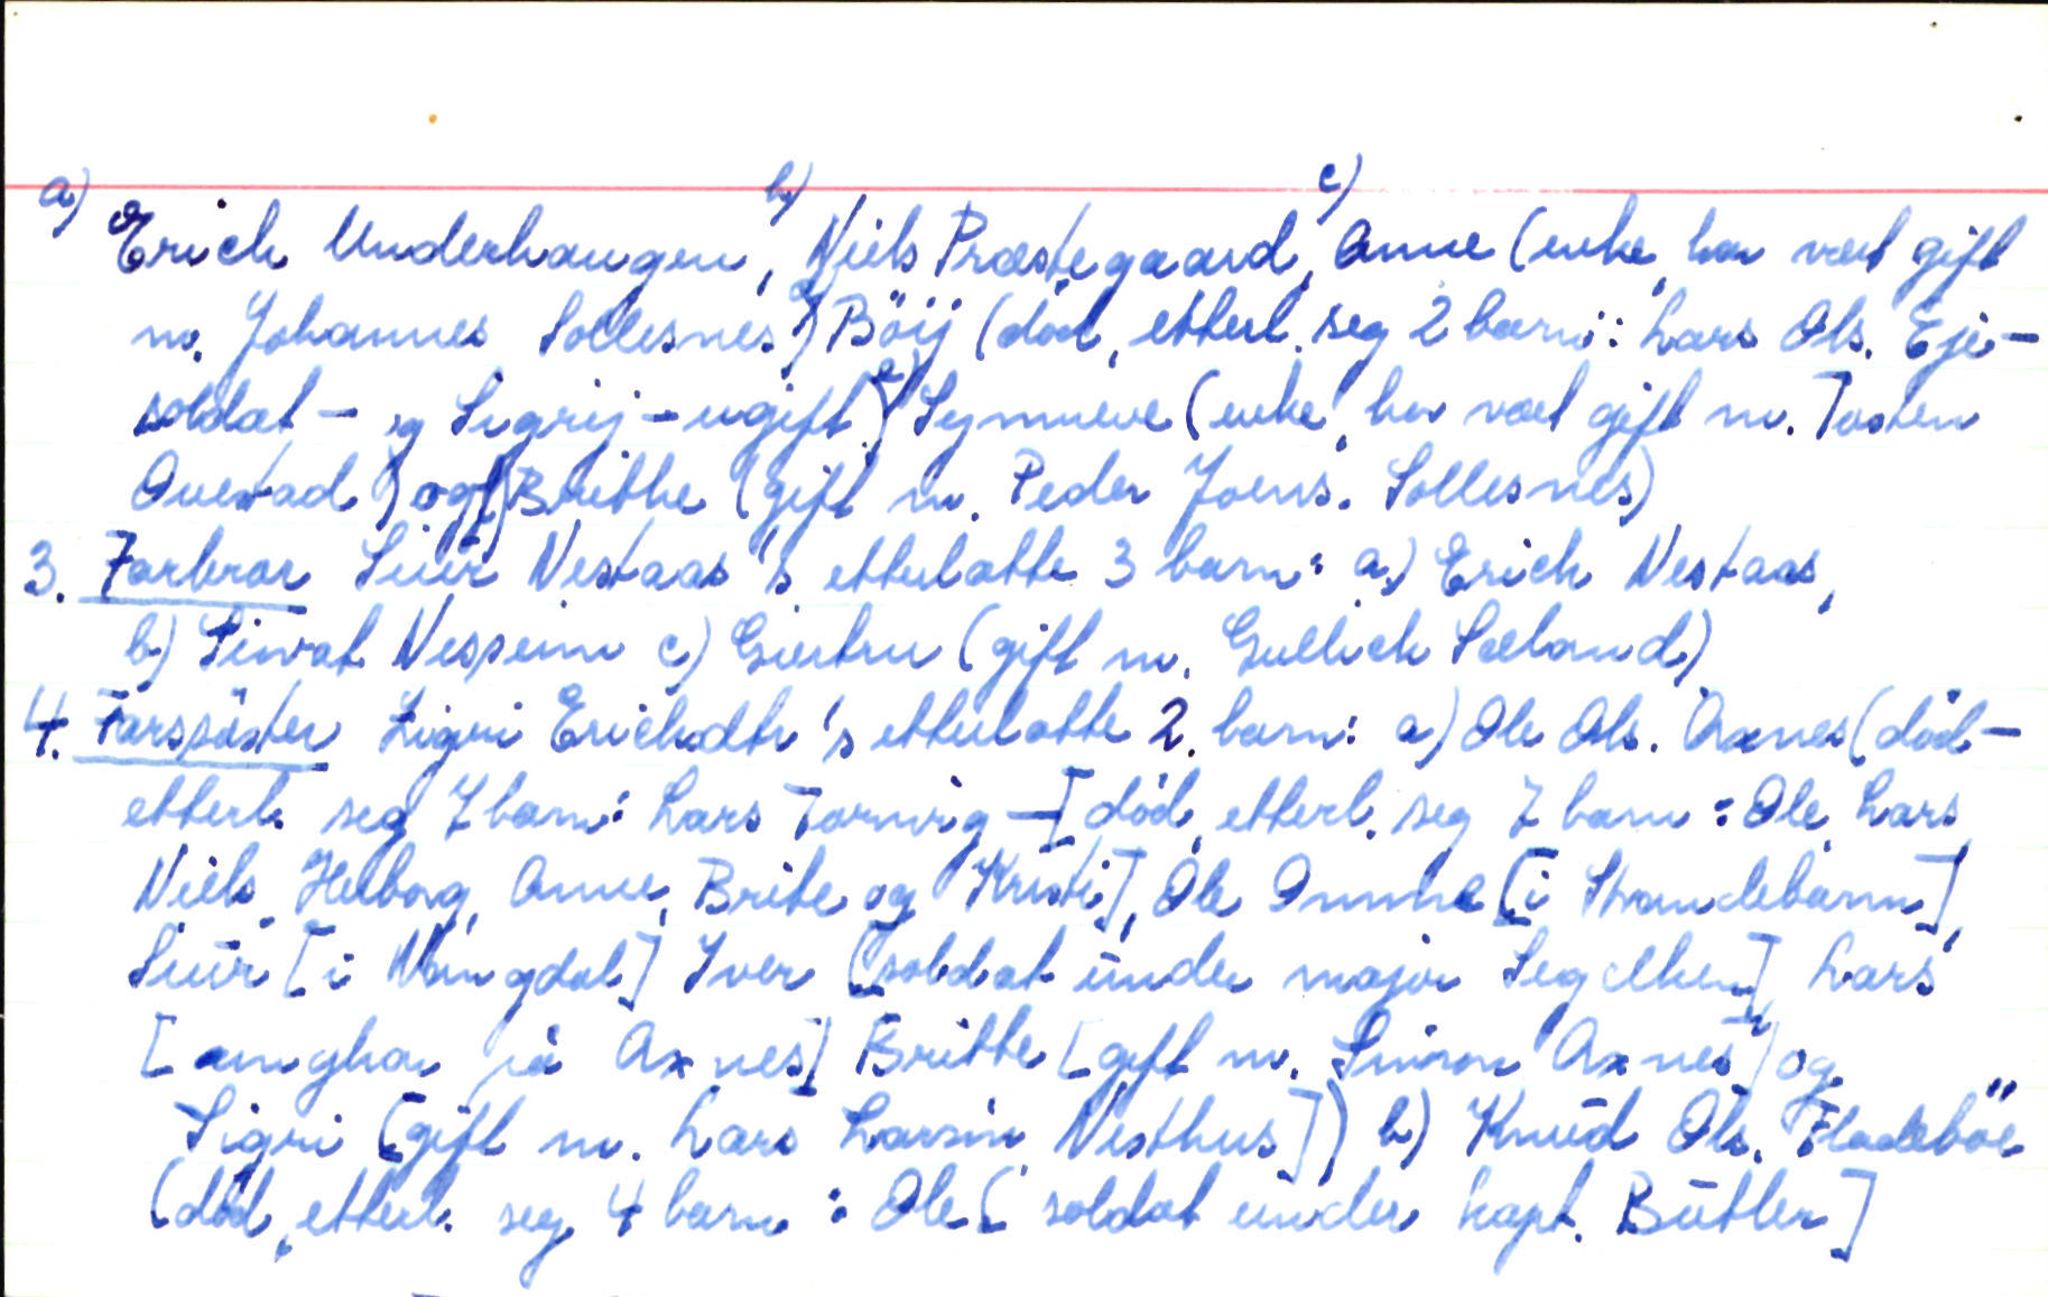 a) Erich Underhaugen, b) Niels Præstegaard, c) Anne (enke, har vært gift
m. Johannes Sollesnes) d) Böij (död, etterl. seg 2 barn: Lars Ols. Eje -
soldat - og Sigrij - ugift) e) Synneve (enke, har vært gift m. Tosten
Questad) og f) Brithe (gift m. Peder Joens. Sollesnes)
3. Farbror Siur Nestaas's etterlatte 3 barn: a) Erich Nestaas,
b) Siwat Nesseim c) Giertru (gift m. Gullich Sæland)
4. Farssöster Zigri Erichsdtr's etterlatte 2 barn: a) Ole Ols. Axnes (död -
etterl. seg 7 barn: Lars Torwig - [död, etterl. seg 7 barn: Ole, Lars,
Niels, Helborg, Anne, Brite og Kristi], Ole [i Strandebarm],
Siur [i Wangdal] Iver [soldat under major Segelken], Lars
[ på Axnes] Britte [gift m. Simon Axnes] og
Sigri [gift m. Lars Larsen Nesthus]) b) Knud Ols. Fladeböe
(död, etterl. seg 4 barn: Ole [soldat under kapt. Bütler]